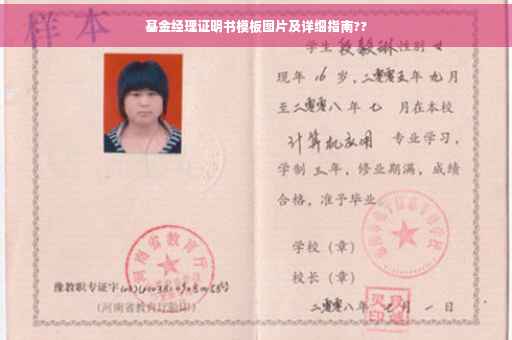 基金经理证明书模板图片及详细指南??
样本
学生 段毅琳 性别 女
现年 16 岁，二零零五年 九月
至二零零八年 七 月在本校
计算机应用 专业学习，
学制 三 年，修业期满，成绩
合格，准予毕业
学校（章）
校长（章）
二零零八年 月 一 日
河南省教育厅
豫教职专证字
（河南省教育厅验印）